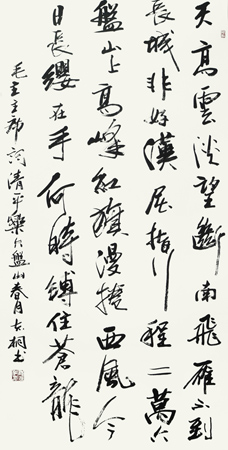 天高雲淡望斷南飛雁不到
長城非好漢屈指行程二萬六
盤山上高峰紅旗漫捲西風今
日長纓在手何時縛住蒼龍
毛主席詞清平樂六盤山春月桐書